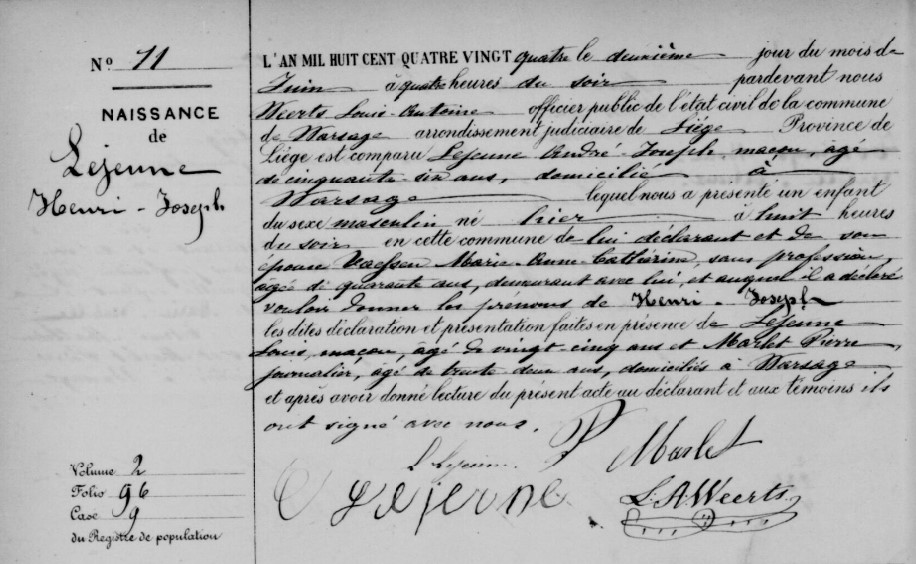 N° 11
NAISSANCE
de
Lejeune
Henri - Joseph
Volume 2
Folio 96
Case 9
du Registre de population
L'AN MIL HUIT CENT QUATRE VINGT quatre le deuxième jour du mois de
Juin à quatre heures du soir pardevant nous
Weerts Louis Antoine officier public de l'état civil de la commune
de Warsage arrondissement judiciaire de Liége Province de
Liége est comparu Lejeune André Joseph, maçon, agé
de cinquante six ans, domicilié à
Warsage lequel nous a présenté un enfant
du sexe masculin né hier à huit heures
du soir en cette commune de lui déclarant et de son
épouse Vaessen Marie-Anne-Cathérine, sans profession,
agée de quarante ans, demeurant avec lui, et auquel il a déclaré
vouloir donner les prénoms de Henri - Joseph
les dites déclaration et présentation faites en présence de Lejeune
Louis, maçon, agé de vingt cinq ans et Marlet Pierre,
journalier, agé de trente deux ans, domiciliés à Warsage
et après avoir donné lecture du présent acte au déclarant et aux témoins ils
ont signé avec nous.
L Lejeune P Marlet
Lejeune L. A. Weerts